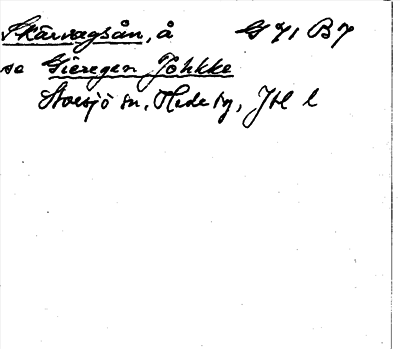 Skärvagsån, å G 71 B7
se Gïeregen Johkke
Storsjö sn, Hede tg, Jtl l